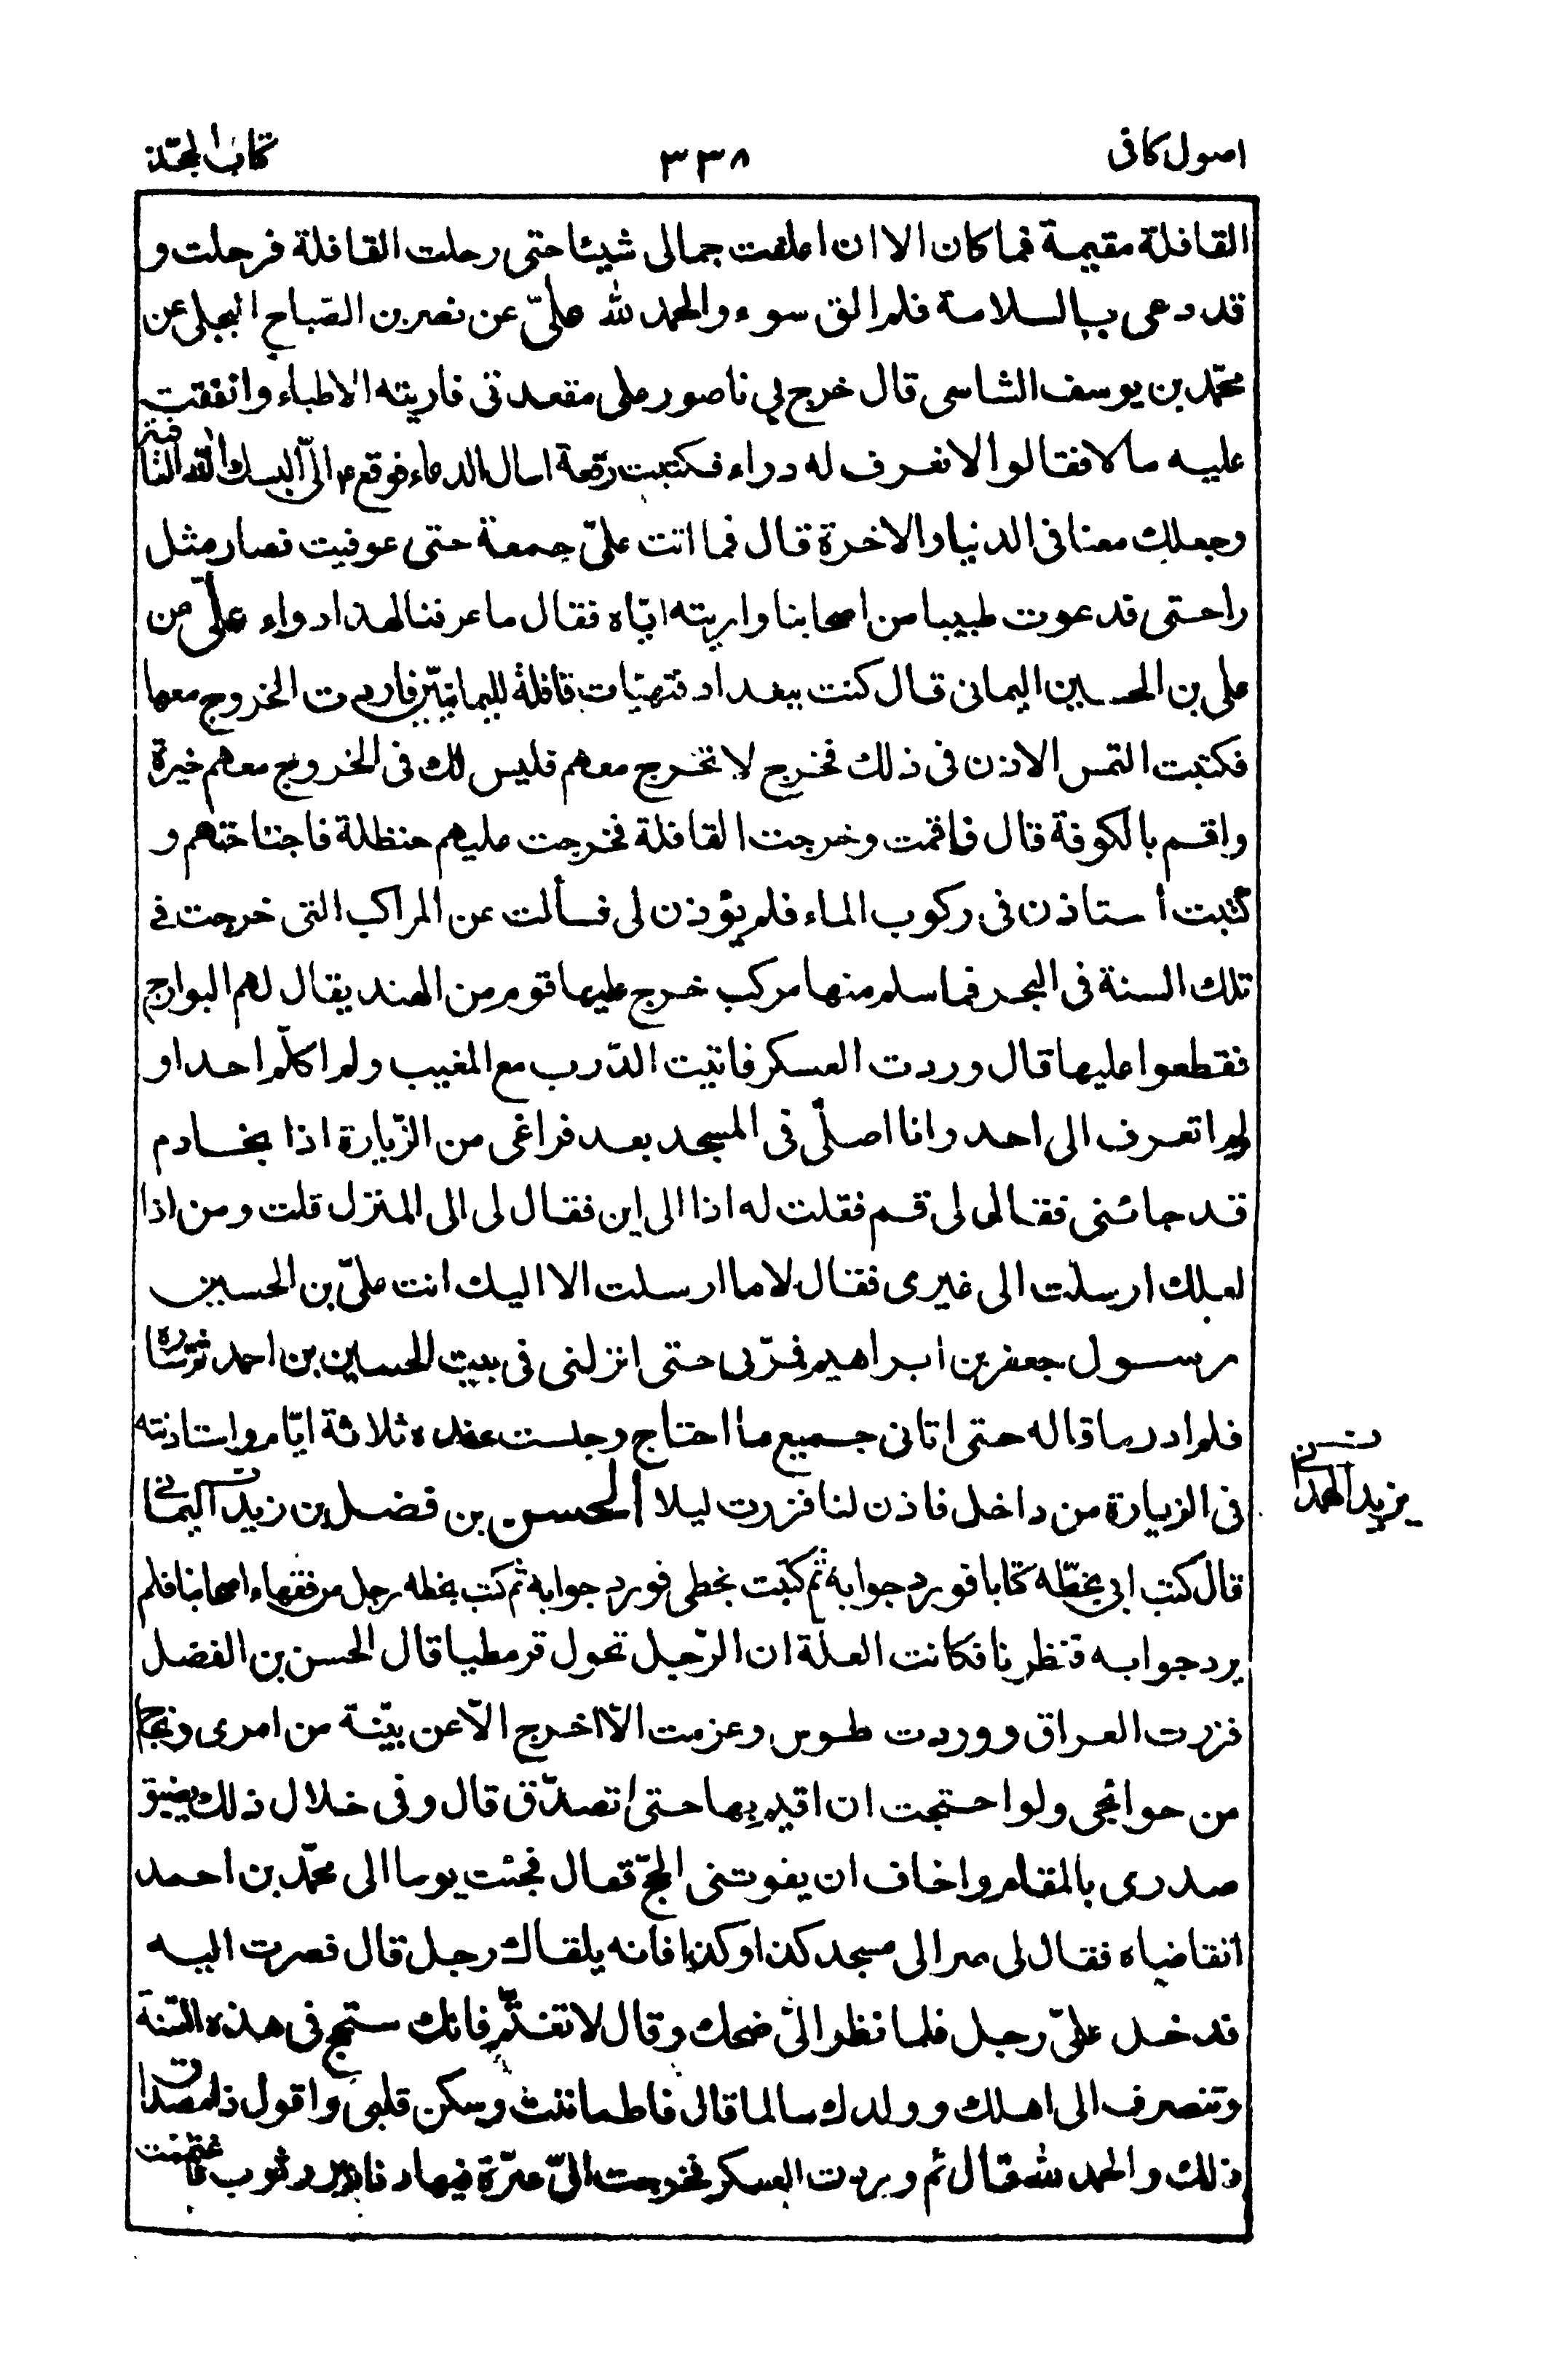 اصول كافى
٣٣٨
كتاب الحجّة
القافلة مقيمة فما كان الا ان اعلفت جمالى شيئا حتى رحلت القافلة فرحلت و
قد دعى بالسلامة فلم الق سوء والحمد لله علىّ عن نصر بن الصّباح البجلى عن
محمّد بن يوسف الشاسى قال خرج بى ناصور على مقعدتى فاريته الاطباء وانفقت
عليه مالا فقالوا لا نعرف له دواء فكتبت رقعة اسال الدعاء فوقع ع الىّ البسك الله العافية
وجعلك معنا فى الدنيا والاخرة قال فما اتت علىّ جمعة حتى عوفيت فصار مثل
راحتى فدعوت طبيبا من اصحابنا واريته ايّاه فقال ما عرفنا لهذا دواء علىّ عن
على بن الحسين اليمانى قال كنت ببغداد فتهيّات قافلة لليمانيّين فاردت الخروج معها
فكتبت التمس الاذن فى ذلك فخرج لا تخرج معهم فليس لك فى الخروج معهم خيرة
واقم بالكوفة قال فاقمت وخرجت القافلة فخرجت عليهم حنظلة فاجتاحتهم و
كتبت أستاذن فى ركوب الماء فلم يؤذن لى فسألت عن المراكب التى خرجت فى
تلك السنة فى البحر فما سلم منها مركب خرج عليها قوم من الهند يقال لهم البوارج
فقطعوا عليها قال وردت العسكر فاتيت الدّرب مع المغيب ولم اكلّم احدا و
لم اتعرف الى احد وانا اصلّى فى المسجد بعد فراغى من الزّيارة اذا بخادم
قد جائنى فقال لى قم فقلت له اذا الى اين فقال لى الى المنزل قلت ومن اذا
لعلك ارسلت الى غيرى فقال لا ما ارسلت الا اليك انت علىّ بن الحسين
رسول جعفر بن ابراهيم فمرّ بى حتى انزلنى فى بيت الحسين بن احمد ثمّ سارّه
فلم ادر ما قال له حتى اتانى جميع ما احتاج وجلست عنده ثلاثة ايّام واستاذنته
فى الزيارة من داخل فاذن لنا فزرت ليلا الحسن بن فضل بن زيد اليمانى
ن
يزيد الهمدانى
قال كتب ابى بخطّه كتابا فورد جوابه ثم كتبت بخطى فورد جوابه ثم كتب بخطه رجل من فقهاء اصحابنا فلم
يرد جوابه فنظرنا فكانت العلّة ان الرّجل تحول قرمطيا قال الحسن بن الفضل
فزرت العراق ووردت طوس وعزمت الّا اخرج الّا عن بيّنة من امرى ونجاح
من حوائجى ولو احتجت ان اقيم بها حتى اتصدّق قال وفى خلال ذلك يضيق
صدرى بالمقام واخاف ان يفوتنى الحجّ قال فجئت يوما الى محمّد بن احمد
اتقاضاه فقال لى صر الى مسجد كذا وكذا فانه يلقاك رجل قال فصرت اليه
فدخل علىّ رجل فلما نظر الىّ ضحك وقال لا تغتمّ فانك ستحج فى هذه السّنة
وتنصرف الى اهلك وولدك سالما قال فاطماننت وسكن قلبى واقول ذا مصداق
ذلك والحمد لله قال ثم وردت العسكر فخرجت الىّ صرّة فيها دنانير وثوب فاغتممت